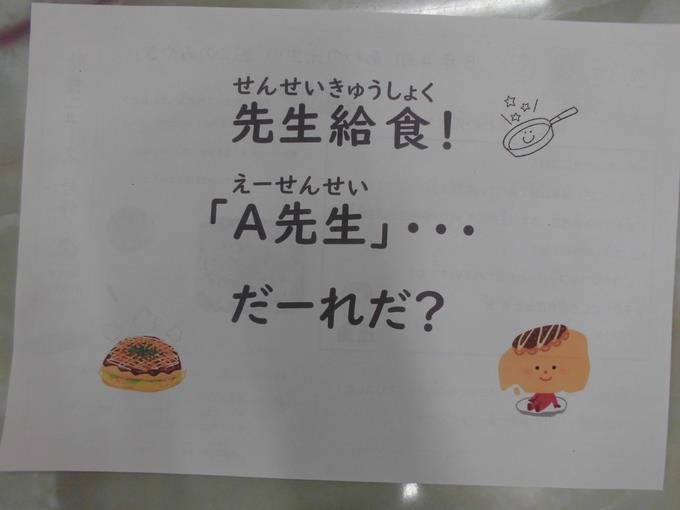 せんせいきゅうしょく
先生給食！
えーせんせい
「Ａ先生」・・・
だーれだ？